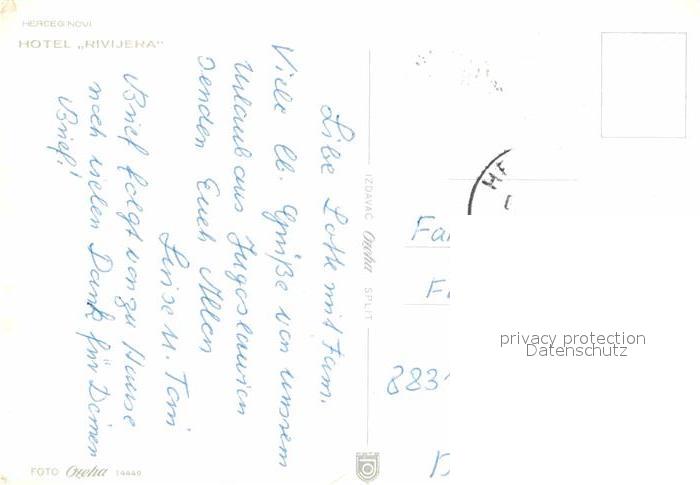 HERCEGNOVI
HOTEL „RIVIJERA"
Liebe Lotte mit Fam.
Viele lb. Grüße von unsrem
Urlaub aus Jugoslawien
senden Euch Allen
Luise u. Toni
Brief folgt von zu Hause
noch vielen Dank für Deinen
Brief!
IZDAVAČ Oreha SPLIT
FOTO Oreha 14440
HE
Fa
F
883
privacy protection
Datenschutz